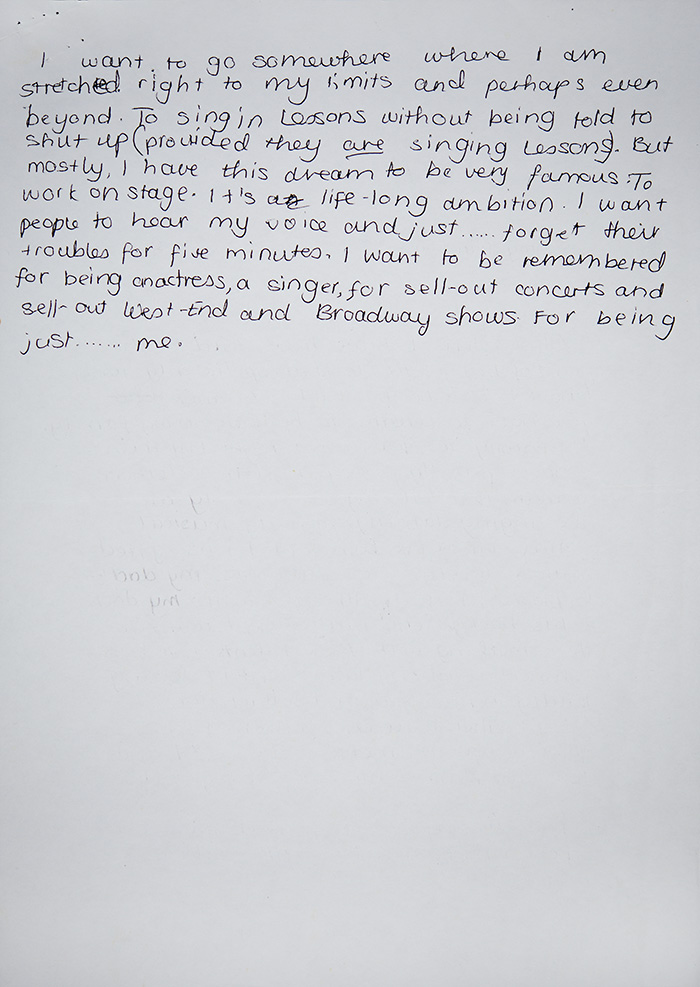 I want to go somewhere where I am
stretched right to my limits and perhaps even
beyond. To sing in Lessons without being told to
shut up (provided they are singing Lessons). But
mostly, I have this dream to be very famous. To
work on stage. It's a life-long ambition. I want
people to hear my voice and just...... forget their
troubles for five minutes. I want to be remembered
for being an actress, a singer, for sell-out concerts and
sell-out West-End and Broadway shows. For being
just....... me.
my